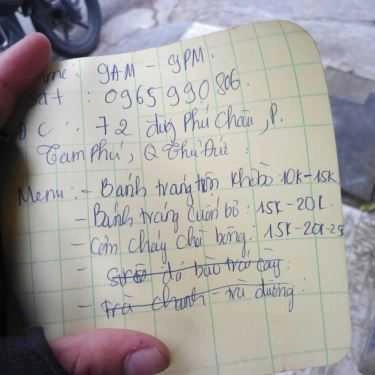 Time: 9AM - 9PM.
sđt : 0965 990 806.
Đ C : 72 đường Phú Châu, P.
Tam Phú, Q Thủ Đức :
Menu : - Bánh tráng trộn khô bò : 10K - 15K
- Bánh tráng cuốn bò : 15K - 20K
- Cơm cháy chà bông : 15K - 20K - 25
- đá bào trái cây
- Trà chanh - trà đường :